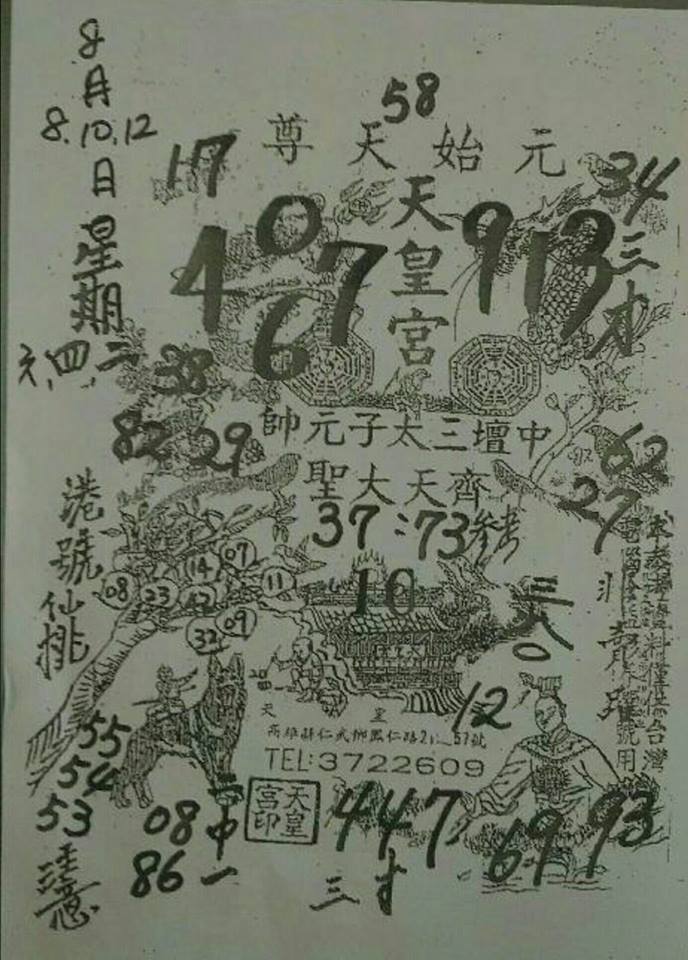 8月
8.10.12
日
星期
六.四.二
58
元始天尊
17
34
天皇宮
4067
913
三才
38
82 29
中壇三太子元帥
齊天大聖
62
27
37:73參考
港號仙桃
14 07
08 23 42 11
32 09
10
三八〇
12
天皇
TEL:3722609
天皇宮印
55
54
53
注意
08
86
二中一
447
三才
69 93